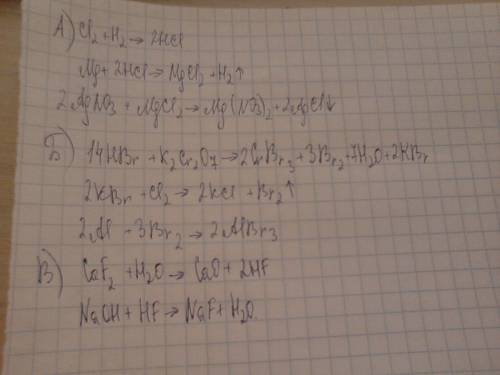 А) Cl2 + H2 → 2HCl
Mg + 2HCl → MgCl2 + H2↑
2AgNO3 + MgCl2 → Mg(NO3)2 + 2AgCl↓
Б) 14HBr + K2Cr2O7 → 2CrBr3 + 3Br2 + 7H2O + 2KBr
2KBr + Cl2 → 2KCl + Br2↑
2Al - 3Br2 → 2AlBr3
В) CaF2 + H2O → CaO + 2HF
NaOH + HF → NaF + H2O